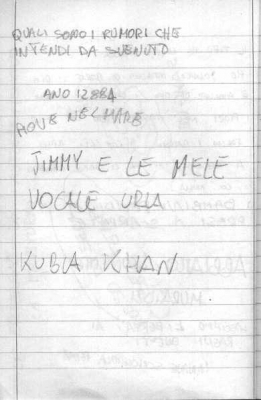 QUALI SONO I RUMORI CHE
INTENDI DA SVENUTO
ANO 12884
PIOVE NEL MARE
JIMMY E LE MELE
VOCALE URLA
KUBLA KHAN